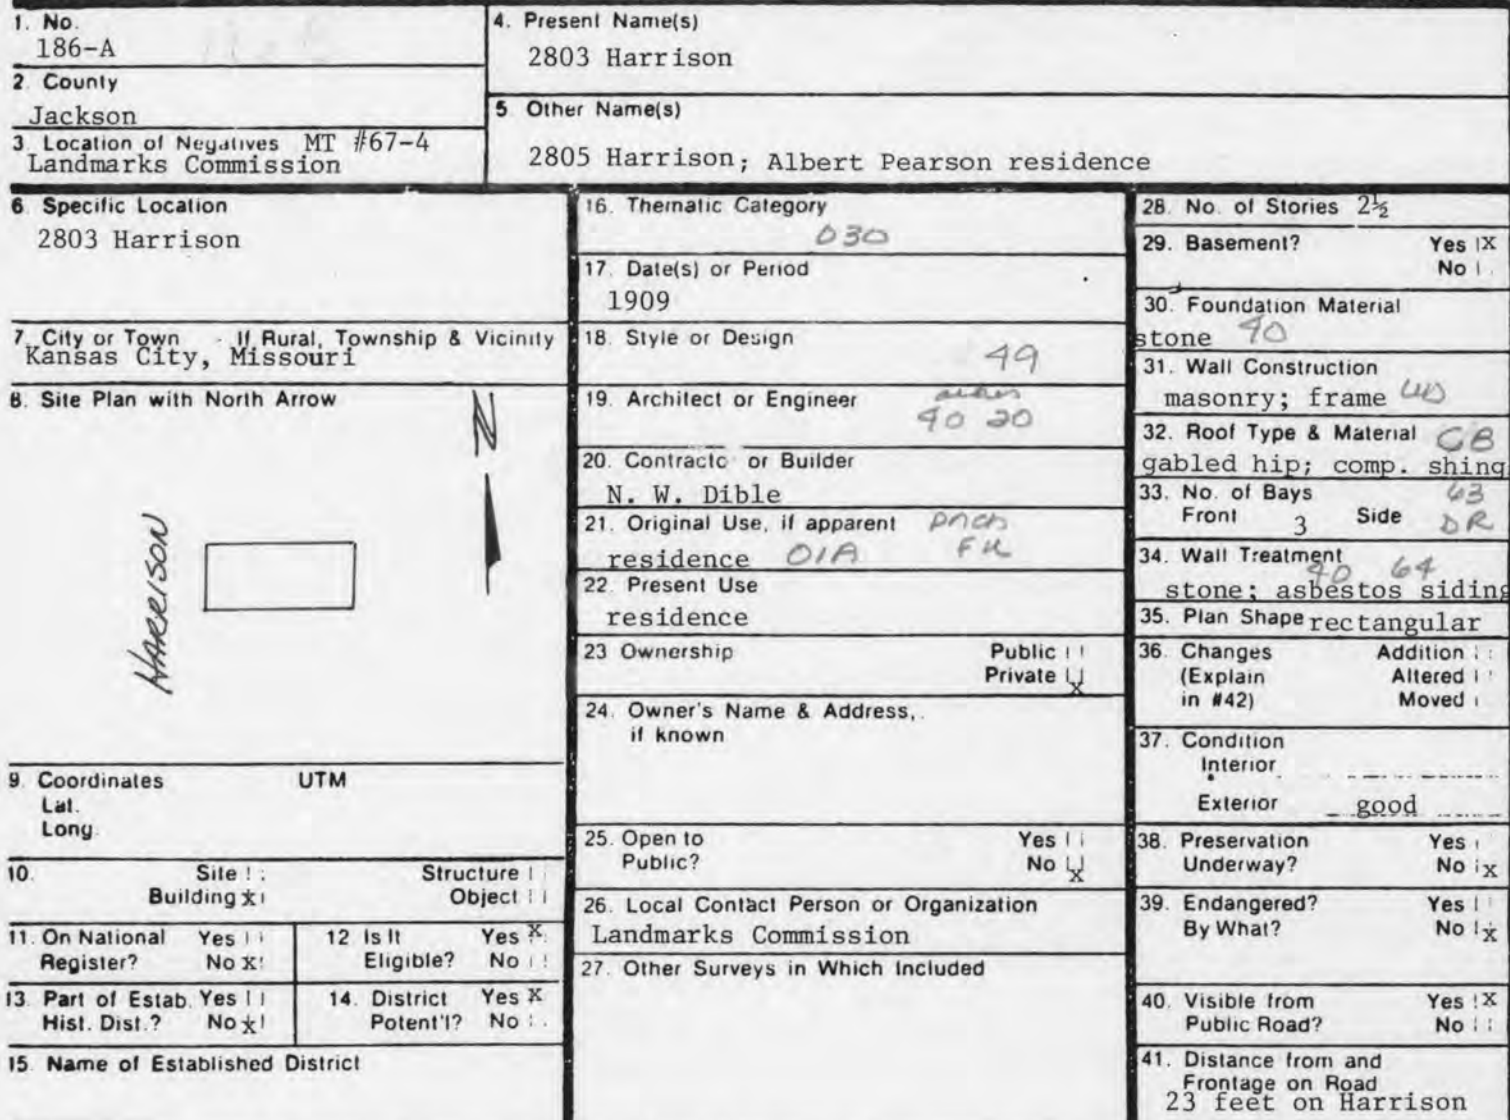 1. No.
186-A
2. County
Jackson
3. Location of Negatives MT #67-4
Landmarks Commission
4. Present Name(s)
2803 Harrison
5. Other Name(s)
2805 Harrison; Albert Pearson residence
6. Specific Location
2803 Harrison
7. City or Town If Rural, Township & Vicinity
Kansas City, Missouri
8. Site Plan with North Arrow
N
HARRISON
9. Coordinates UTM
Lat.
Long.
10. Site Structure
Building x Object
11. On National Yes
Register? No X
12 Is It Yes X
Eligible? No
13. Part of Estab. Yes
Hist. Dist.? No x
14. District Yes X
Potent'l? No
15. Name of Established District
16. Thematic Category
030
17. Date(s) or Period
1909
18. Style or Design
49
19. Architect or Engineer
40 20
20. Contracto or Builder
N. W. Dible
21. Original Use, if apparent PNCH
residence 01A
22. Present Use
residence
23 Ownership Public
Private X
24. Owner's Name & Address,
if known
25. Open to Yes
Public? No X
26. Local Contact Person or Organization
Landmarks Commission
27. Other Surveys in Which Included
28. No. of Stories 2½
29. Basement? Yes X
No
30. Foundation Material
stone 40
31. Wall Construction
masonry; frame WD
32. Roof Type & Material CB
gabled hip; comp. shing
33. No. of Bays 63
Front 3 Side DR
34. Wall Treatment
40 64
stone; asbestos siding
35. Plan Shape rectangular
36. Changes Addition
(Explain Altered
in #42) Moved
37. Condition
Interior
Exterior good
38. Preservation Yes
Underway? No X
39. Endangered? Yes
By What? No X
40. Visible from Yes X
Public Road? No
41. Distance from and
Frontage on Road
23 feet on Harrison